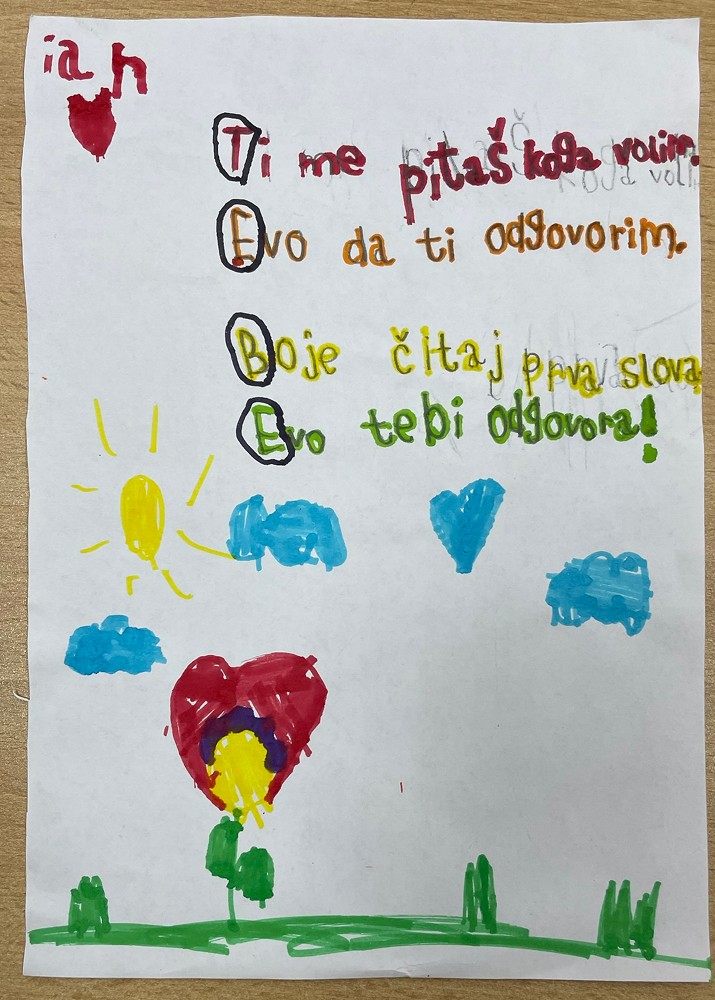 ian
Ti me pitaš koga volim.
Evo da ti odgovorim.
Boje čitaj prva slova
Evo tebi odgovora!